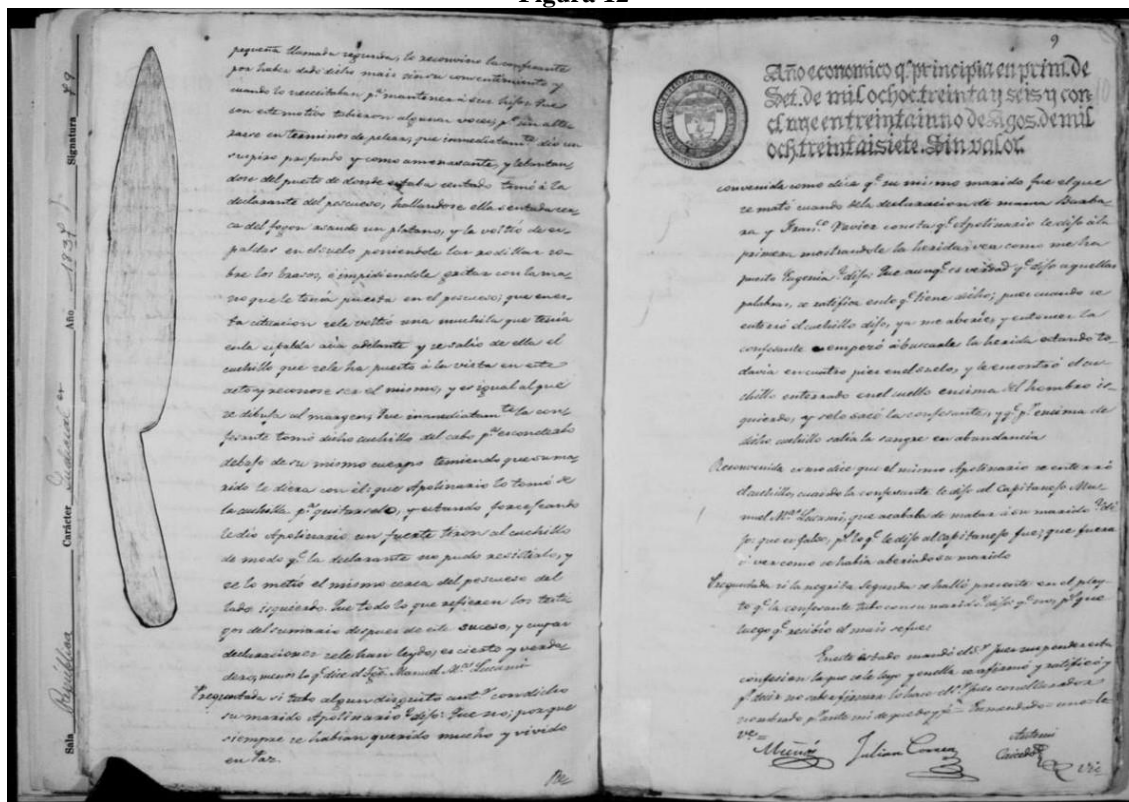 Figura 12
Sala República Año 1837 Signatura 89
Carácter Judicial
pequeña llamada segunda, lo reconvino la confesante
por haber dado dicho mais sin su consentimiento y
cuando lo necesitaban pª mantener á sus hijos: Que
con este motivo tubieron algunas voces, pº sin alte-
rarse en terminos de pelear, que inmediatamte dio un
suspiro profundo y como amenasante, y lebantan-
dose del puesto de donde estaba sentado tomó á la
declarante del pescueso, hallandose ella sentada cer-
ca del fogon asando un platano, y la voltió de es-
paldas en el suelo poniendole las rodillas so-
bre los brasos, é impidiendole gritar con la ma-
no que le tenia puesta en el pescueso; que en es-
ta cituacion se le voltió una muchila que tenia
en la espalda acia adelante y se salio de ella el
cuchillo que se le ha puesto á la vista en este
acto y reconose ser el mismo, y es igual al que
se dibuja al margen; Que inmediatamte la con-
fesante tomó dicho cuchillo del cabo pª esconderlo
debajo de su mismo cuerpo temiendo que su ma-
rido le diera con él: que Apolinario lo tomó de
la cuchilla pª quitarselo, y estando forcejeando
le dio Apolinario un fuerte tiron al cuchillo
de modo qº la declarante no pudo resistirlo, y
se lo metió el mismo cerca del pescueso del
lado isquierdo. Que todo lo que refieren los testi-
gos del sumario despues de este suceso, y cuyas
declaraciones se le han leydo, es cierto y verda-
dero, menos lo qº dice el Manuel Mª Lucumí
Preguntada si tubo algun disgusto antr con dicho
su marido Apolinario dijo: Que no; porque
siempre se habian querido mucho y vivido
en Paz.
9
10
Año economico q. principia en prim. de
Set. de mil ochoc. treinta y seis y con-
cluye en treinta i uno de Agos. de mil
och. treinta i siete. Sin valor.
convenida como dice qº su mismo marido fue el que
se mató cuando de la declaracion de mama Barba-
ra y Franco Xavier consta qº Apolinario le dijo á la
primera mostrandole la herida, vea como me ha
puesto Eugenia: dijo: Que aunqº es verdad qº dijo aquellas
palabras, se ratifica en lo qº tiene dicho; pues cuando se
enterró el cuchillo dijo, ya me aberíe, y entonces la
confesante empezó á buscarle la herida estando to-
davia en cuatro pies en el suelo, y le encontró el cu-
chillo enterrado en el cuello encima del hombro is-
quierdo, y se lo sacó la confesante, y qº pr encima de
dicho cuchillo salia la sangre en abundancia
Reconvenida como dice que el mismo Apolinario se enterró
el cuchillo, cuando la confesante le dijo al Capitanejo Ma-
nuel Mª Lucumi, que acababa de matar á su marido
que es falso, lo qº le dijo al Capitanejo fue; que fuera
á ver como se habia aberiado su marido
Preguntada si la negrita Segunda se halló presente en el pley-
to qº la confesante tubo con su marido: dijo qº no, pr que
luego qº recibio el mais se fue:
En este estado mandó el Sr Juez suspender esta
confesion la que se le leyo y en ella se afirmó y ratificó y
pr decir no saber firmar lo hace el Sr Juez con el curador
nombrado pr ante mi de que doy fe = Enmendado = uno = le
Muñós Julian Correa Antemi
Caicedo